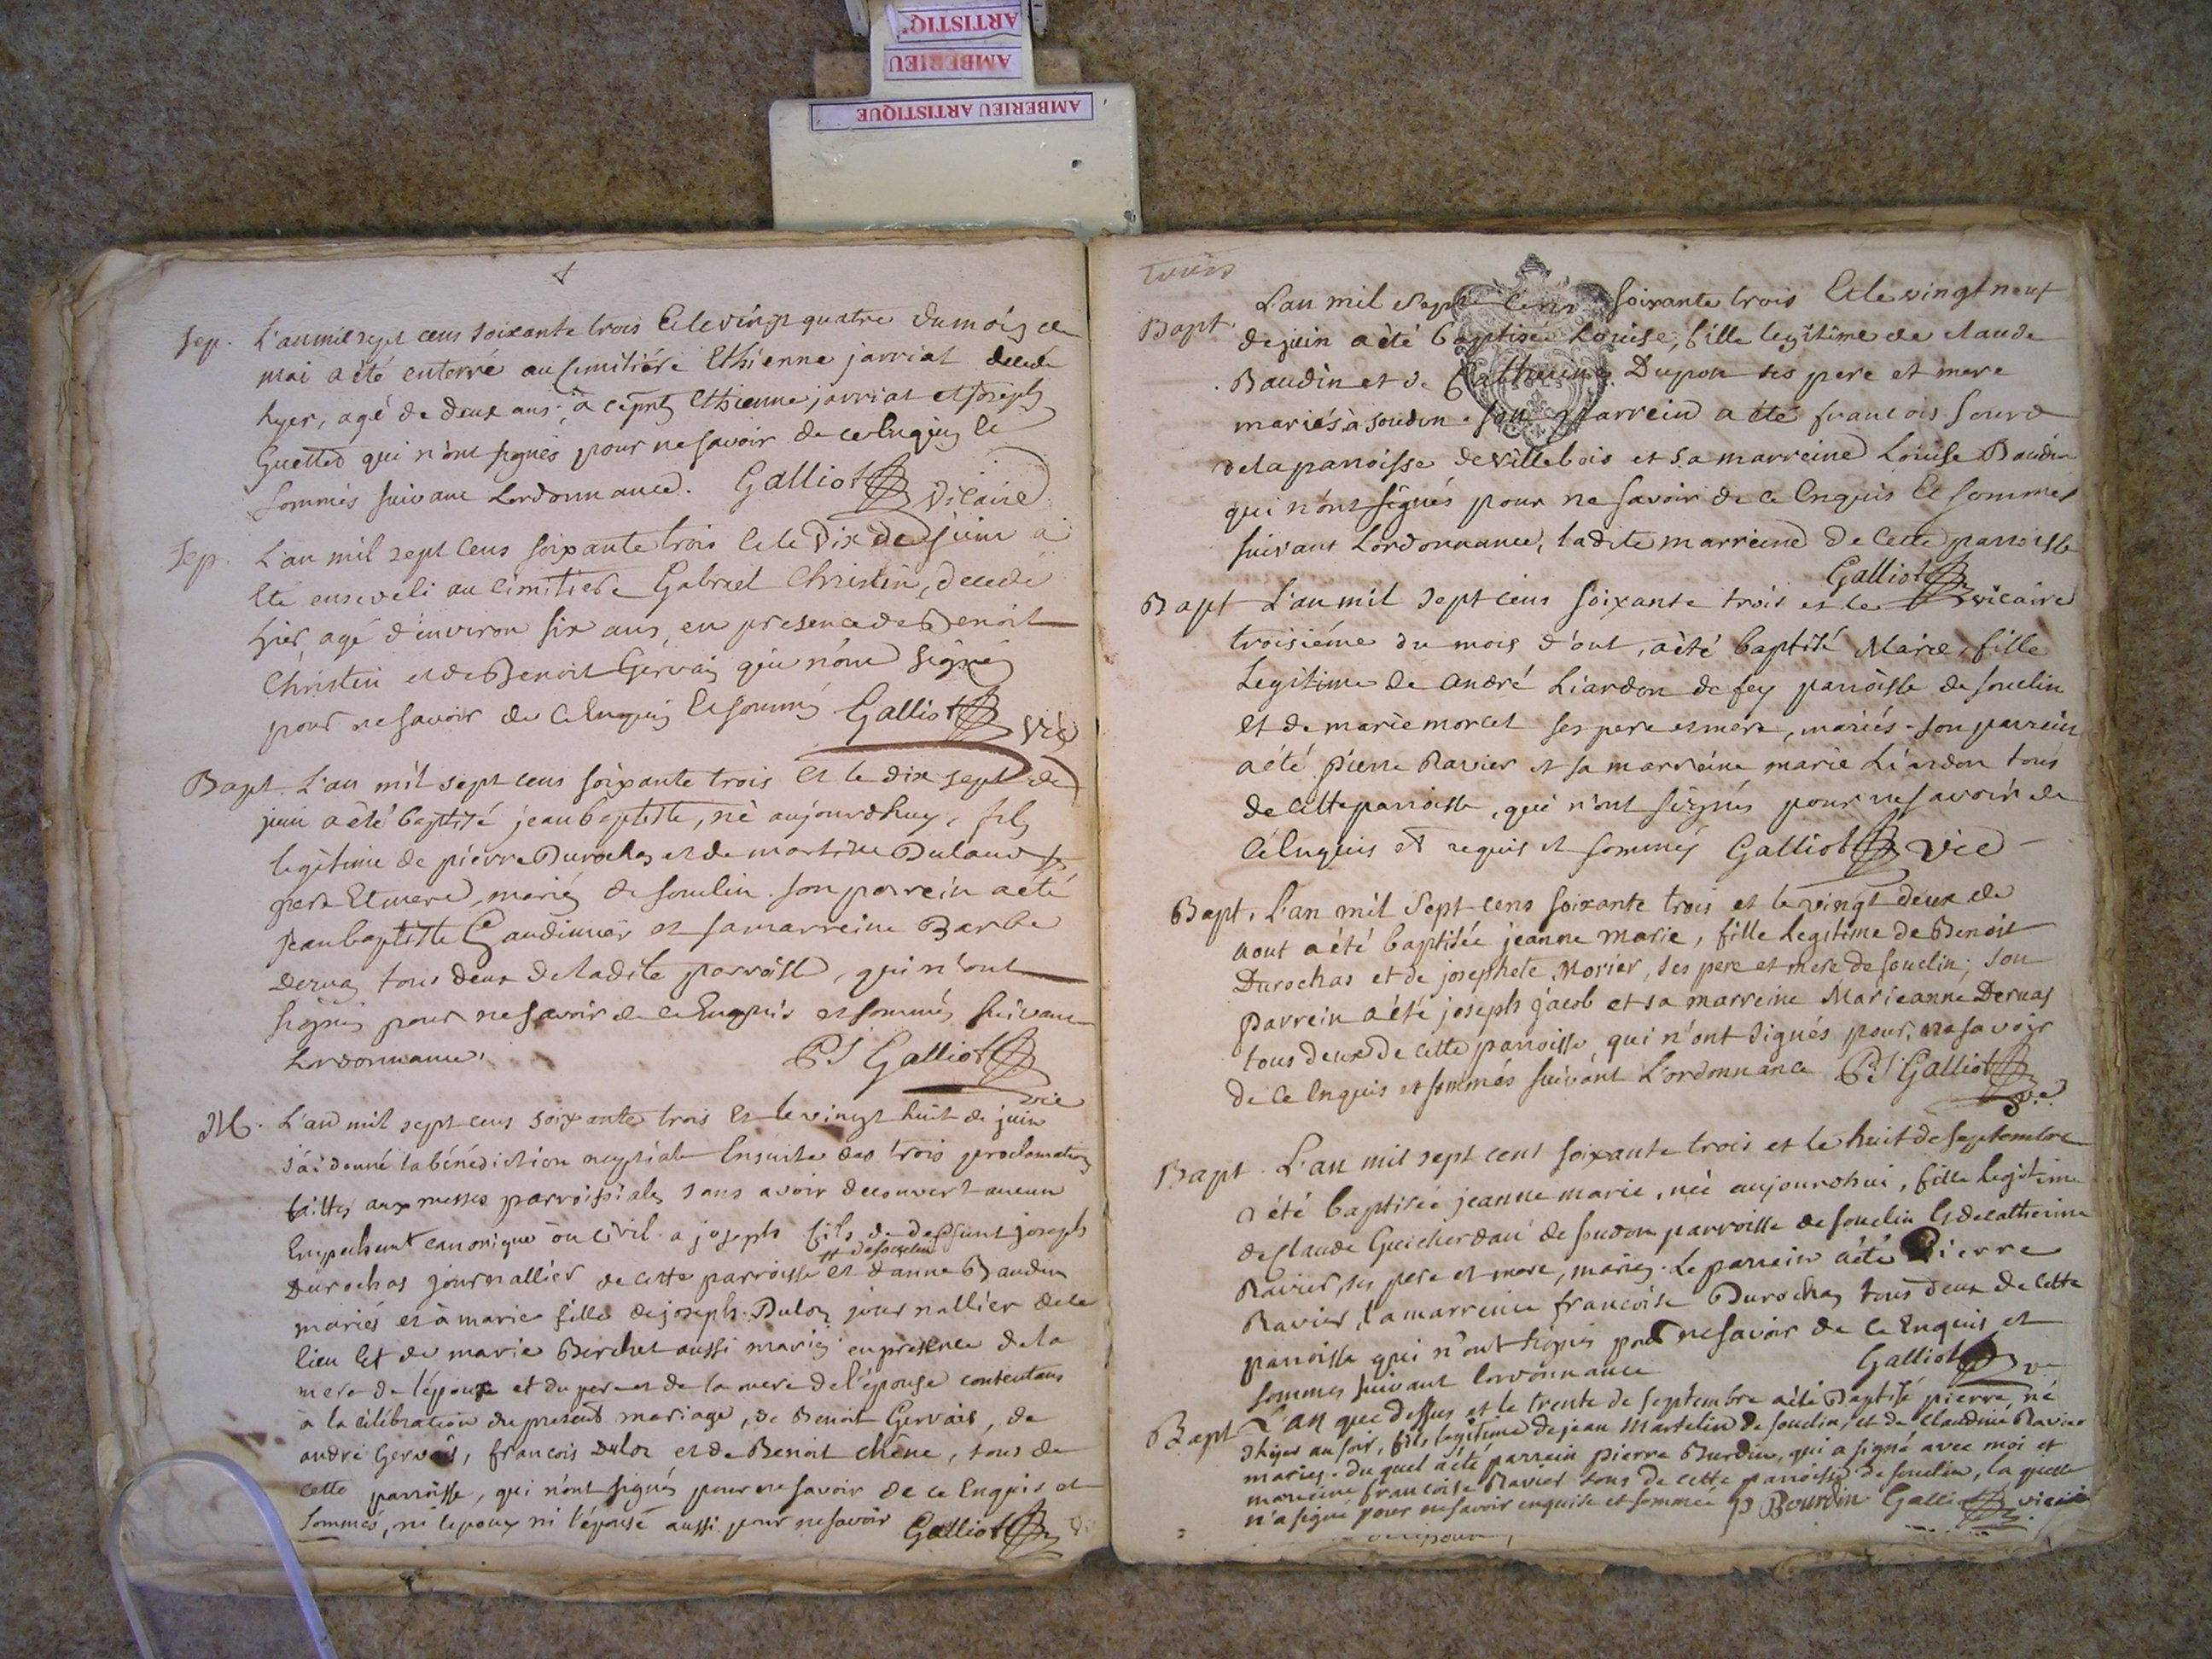 ARTISTIQ
AMBERIEU
AMBERIEU ARTISTIQUE
Sep. L'an mil sept cens soixante trois Et le vingt quatre du mois de
mai a été enterré au cimitiére Ethienne jarriat decedé
hyer, agé de deux ans; à ce pnts Ethienne jarriat et Joseph
Guettet qui n'ont signés pour ne savoir de ce Enquis Et
sommés suivant Lordonnance. Galliot Vicaire
Sep. L'an mil sept cens soixante trois Et le Dix de juin a
Eté enseveli au cimitiere Gabriel Christin, decedé
hier, agé d'environ six ans, en presence de Benoit
Christin et de Benoit Gervais qui n'ont signé
pour ne savoir de ce Enquis Et sommés Galliot Vic
Bapt. L'an mil sept cens soixante trois Et le dix sept de
juin a été baptisé jean baptiste, né aujourdhuy, fils
legitime de pierre Durochas et de martine Dulauv ses
pere Et mere, mariés de souclin. son parrein a eté
jean baptiste Gaudimier et sa marreine Barbe
Dervas tous deux de ladite parroisse, qui n'ont
signés pour ne savoir de ce Enquis et sommés suivant
Lordonnance. PJ Galliot
vic
M. L'an mil sept cens soixante trois Et le vingt huit de juin
j'ai donné la bénédiction nuptiale Ensuite des trois proclamations
faittes aux messes parroissiales sans avoir decouvert aucun
Empechement canonique ou civil a joseph fils de deffunt joseph
# de souclin
Durochas journallier de cette parroisse et d'anne Baudin
mariés et à marie fille de joseph Duloz journallier dele
lieu Et de marie Berchet aussi mariés en présence de la
mere de l'époux et du pere et de la mere de l'épouse consentans
à la célébration du present mariage, de Benoit Gervais, de
andré Gervais, francois Duloz et de Benoit chêne, tous de
cette parroisse, qui n'ont signés pour ne savoir de ce Enquis et
sommés, ni lepoux ni l'épouse aussi pour ne savoir Galliot V.
Trois
Bapt. L'an mil sept cens soixante trois Et le vingt neuf
de juin a été baptisée Louise, fille legitime de claude
Baudin et de Catherine Dupon ses pere et mere
mariés à soudon. son parrein a été francois Sourd
de la parroisse de villebois et sa marreine Louise Baudin
qui n'ont signés pour ne savoir de ce Enquis Et sommés
suivant Lordonnance, ladite marreine de cette parroisse
Galliot vicaire
Bapt L'an mil sept cens soixante trois et le
troisiéme du mois d'out, a été baptisé Marie, fille
Legitime de andré Liardon de fey parroisse de souclin
et de marie morcel ses pere et mere, mariés. son parrein
a été pierre Ravier et sa marreine marie Liardon tous
de cette parroisse, qui n'ont signés pour ne savoir de
ce Enquis et requis et sommés Galliot Vic
Bapt. L'an mil sept cens soixante trois et le vingt deux de
aout a été baptisée jeanne marie, fille legitime de Benoit
Durochas et de josephete Morier, ses pere et mere de souclin; son
parrein a été joseph jacob et sa marreine Marieanne Dervas
tous deux de cette parroisse, qui n'ont signés pour ne savoir
de ce Enquis et sommés suivant L'ordonnance PJ Galliot
vic
Bapt. L'an mil sept cent soixante trois et le huit de septembre
a été baptisée jeanne marie, née aujourdhui, fille legitime
de Claude Guicherdau de soudon parroisse de souclin Et de catherine
Ravier, ses pere et mere, mariés. Le parrein a été Pierre
Ravier, la marreine francoise Durochas tous deux de cette
parroisse qui n'ont signés pour ne savoir de ce Enquis et
sommés suivant Lordonnance Galliot v
Bapt L'an que dessus et le trente de septembre a été Baptisé pierre, né
d'hyer au soir, fils legitime de jean Martelin de souclin, et de claudine Ravier
mariés. du quel a été parrein pierre Burdin, qui a signé avec moi et
marreine francoise Ravier tous de cette parroisse de souclin, la quelle
n'a signé pour ne savoir enquise et sommée P Bourdin Galliot vicaire